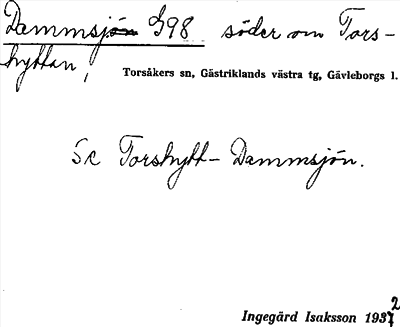 Dammsjön G98 söder om Tors-
hyttan,
Torsåkers sn, Gästriklands västra tg, Gävleborgs l.
Se Torshytt-Dammsjön.
Ingegärd Isaksson 1932